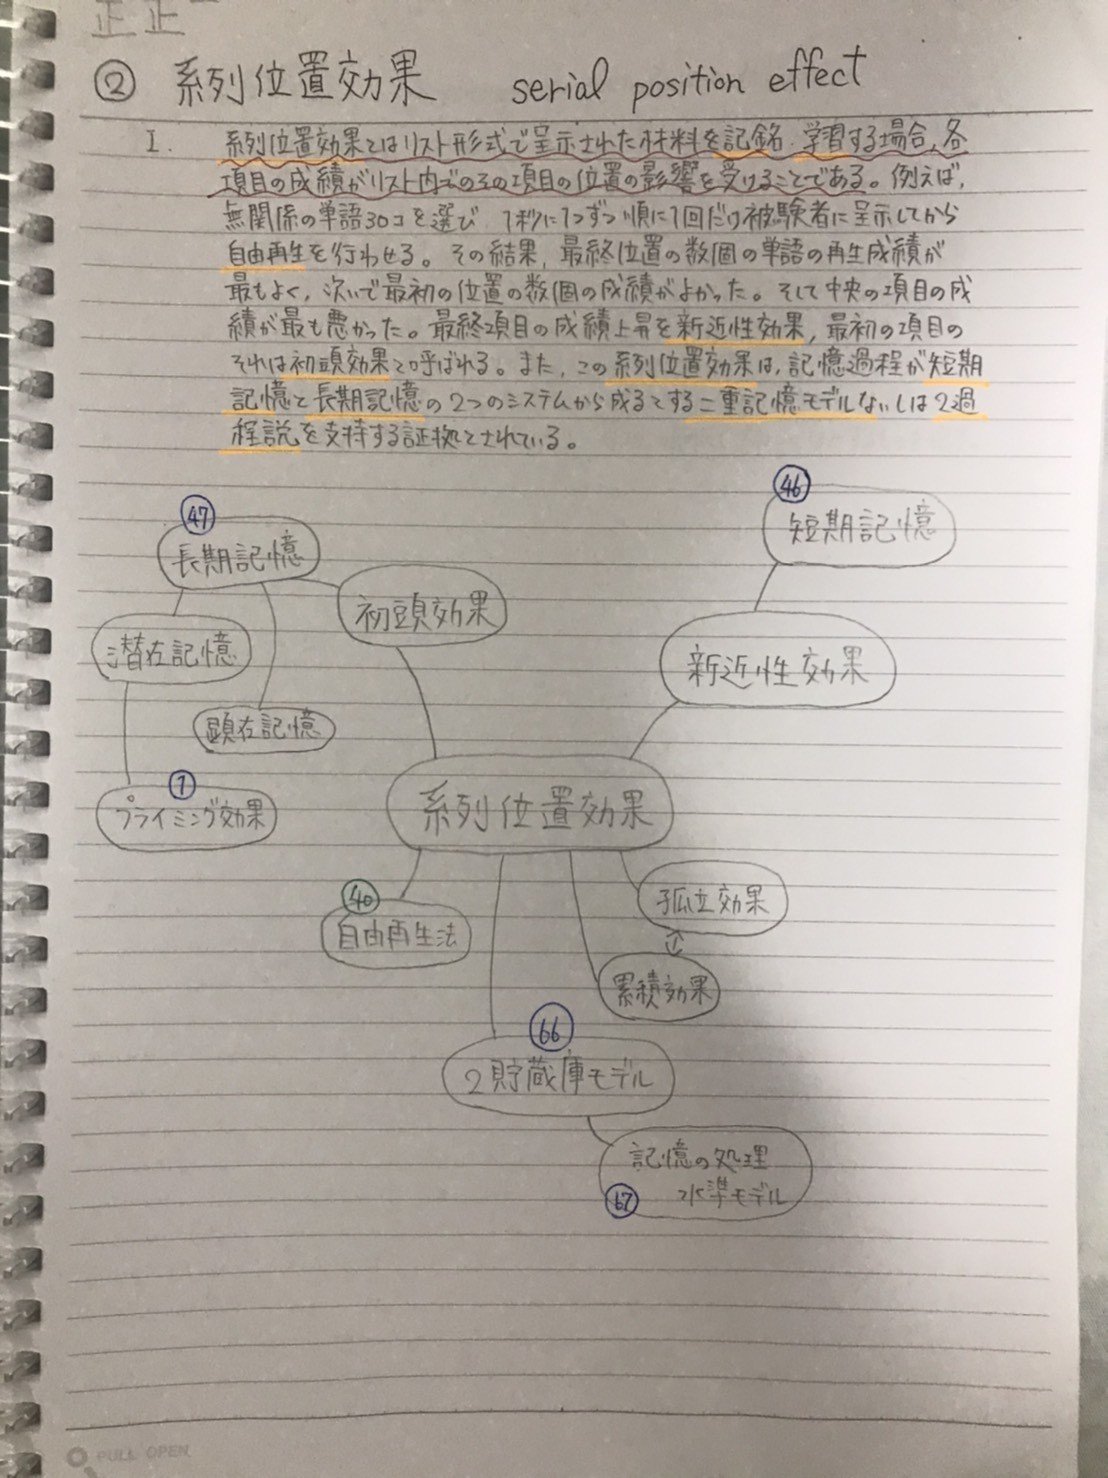 正正
② 系列位置効果 serial position effect
I. 系列位置効果とはリスト形式で呈示された材料を記銘・学習する場合、各
項目の成績がリスト内でのその項目の位置の影響を受けることである。例えば、
無関係の単語30コを選び 1秒に1つずつ順に1回だけ被験者に呈示してから
自由再生を行わせる。その結果、最終位置の数個の単語の再生成績が
最もよく、次いで最初の位置の数個の成績がよかった。そして中央の項目の成
績が最も悪かった。最終項目の成績上昇を新近性効果、最初の項目の
それは初頭効果と呼ばれる。また、この系列位置効果は、記憶過程が短期
記憶と長期記憶の2つのシステムから成るとする二重記憶モデルないしは2過
程説を支持する証拠とされている。
㊼
長期記憶
㊻
短期記憶
初頭効果
潜在記憶
新近性効果
顕在記憶
①
プライミング効果
系列位置効果
㊵
自由再生法
孤立効果
↕
累積効果
66
2貯蔵庫モデル
記憶の処理
水準モデル
67
PULL OPEN